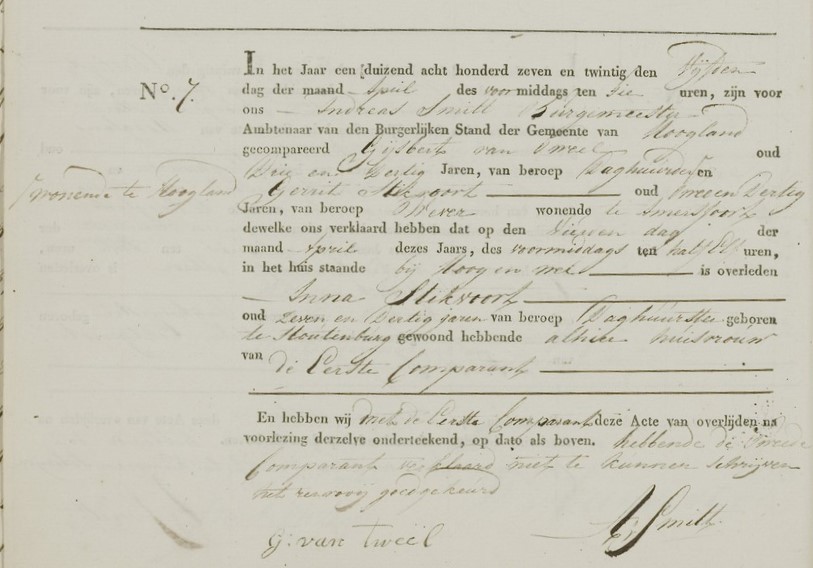 In het Jaar een duizend acht honderd zeven en twintig den Vijfden
No. 7. dag der maand April des voormiddags ten uren, zijn voor
ons Andreas Smitt Burgemeester
Ambtenaar van den Burgerlijken Stand der Gemeente van Hoogland
gecompareerd Gijsbert van Tweel oud
Drie en Dertig Jaren, van beroep Daghuurder en
wonende te Hoogland Gerrit Stikvoort oud Twee en Dertig
Jaren, van beroep Wever wonende te Amersfoort
dewelke ons verklaard hebben dat op den dag der
maand April dezes Jaars, des voormiddags ten half Elf uren,
in het huis staande bij Hoog en is overleden
Anna Stikvoort
oud Zeven en Dertig jaren van beroep Daghuurster geboren
te Stoutenburg gewoond hebbende alhier huisvrouw
van de Eerste Comparant
En hebben wij met de Eerste Comparant deze Acte van overlijden na
voorlezing derzelve onderteekend, op dato als boven. hebbende de Tweede
Comparant verklaard niet te kunnen schrijven
het renvooij goedgekeurd
G: van Tweel A Smitt